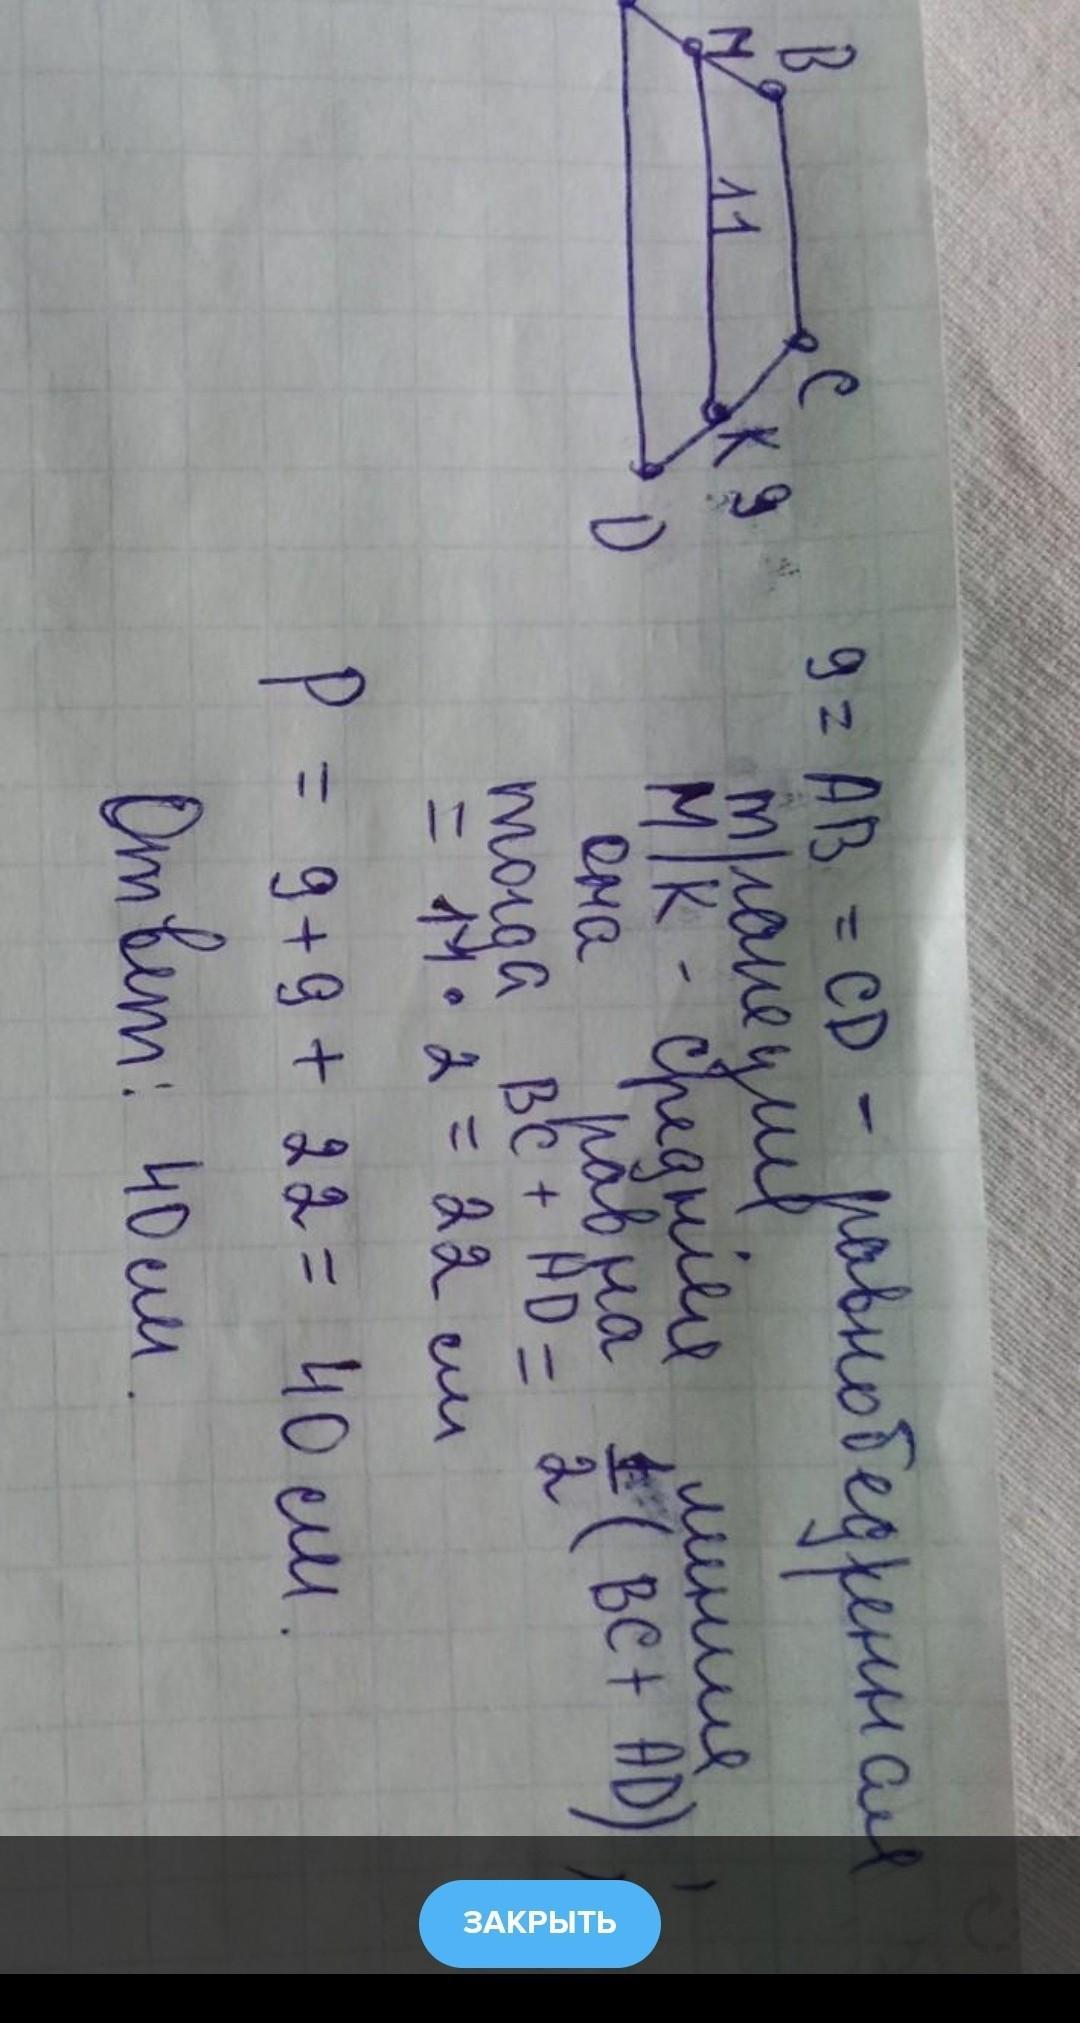 B
M
C
11
K 9
D
9 = AB = CD - равнобедренная
трапеция
MK - средняя линия,
она равна 1/2 (BC + AD),
тогда BC + AD =
= 11 · 2 = 22 см
P = 9 + 9 + 22 = 40 см.
Ответ: 40 см.
ЗАКРЫТЬ